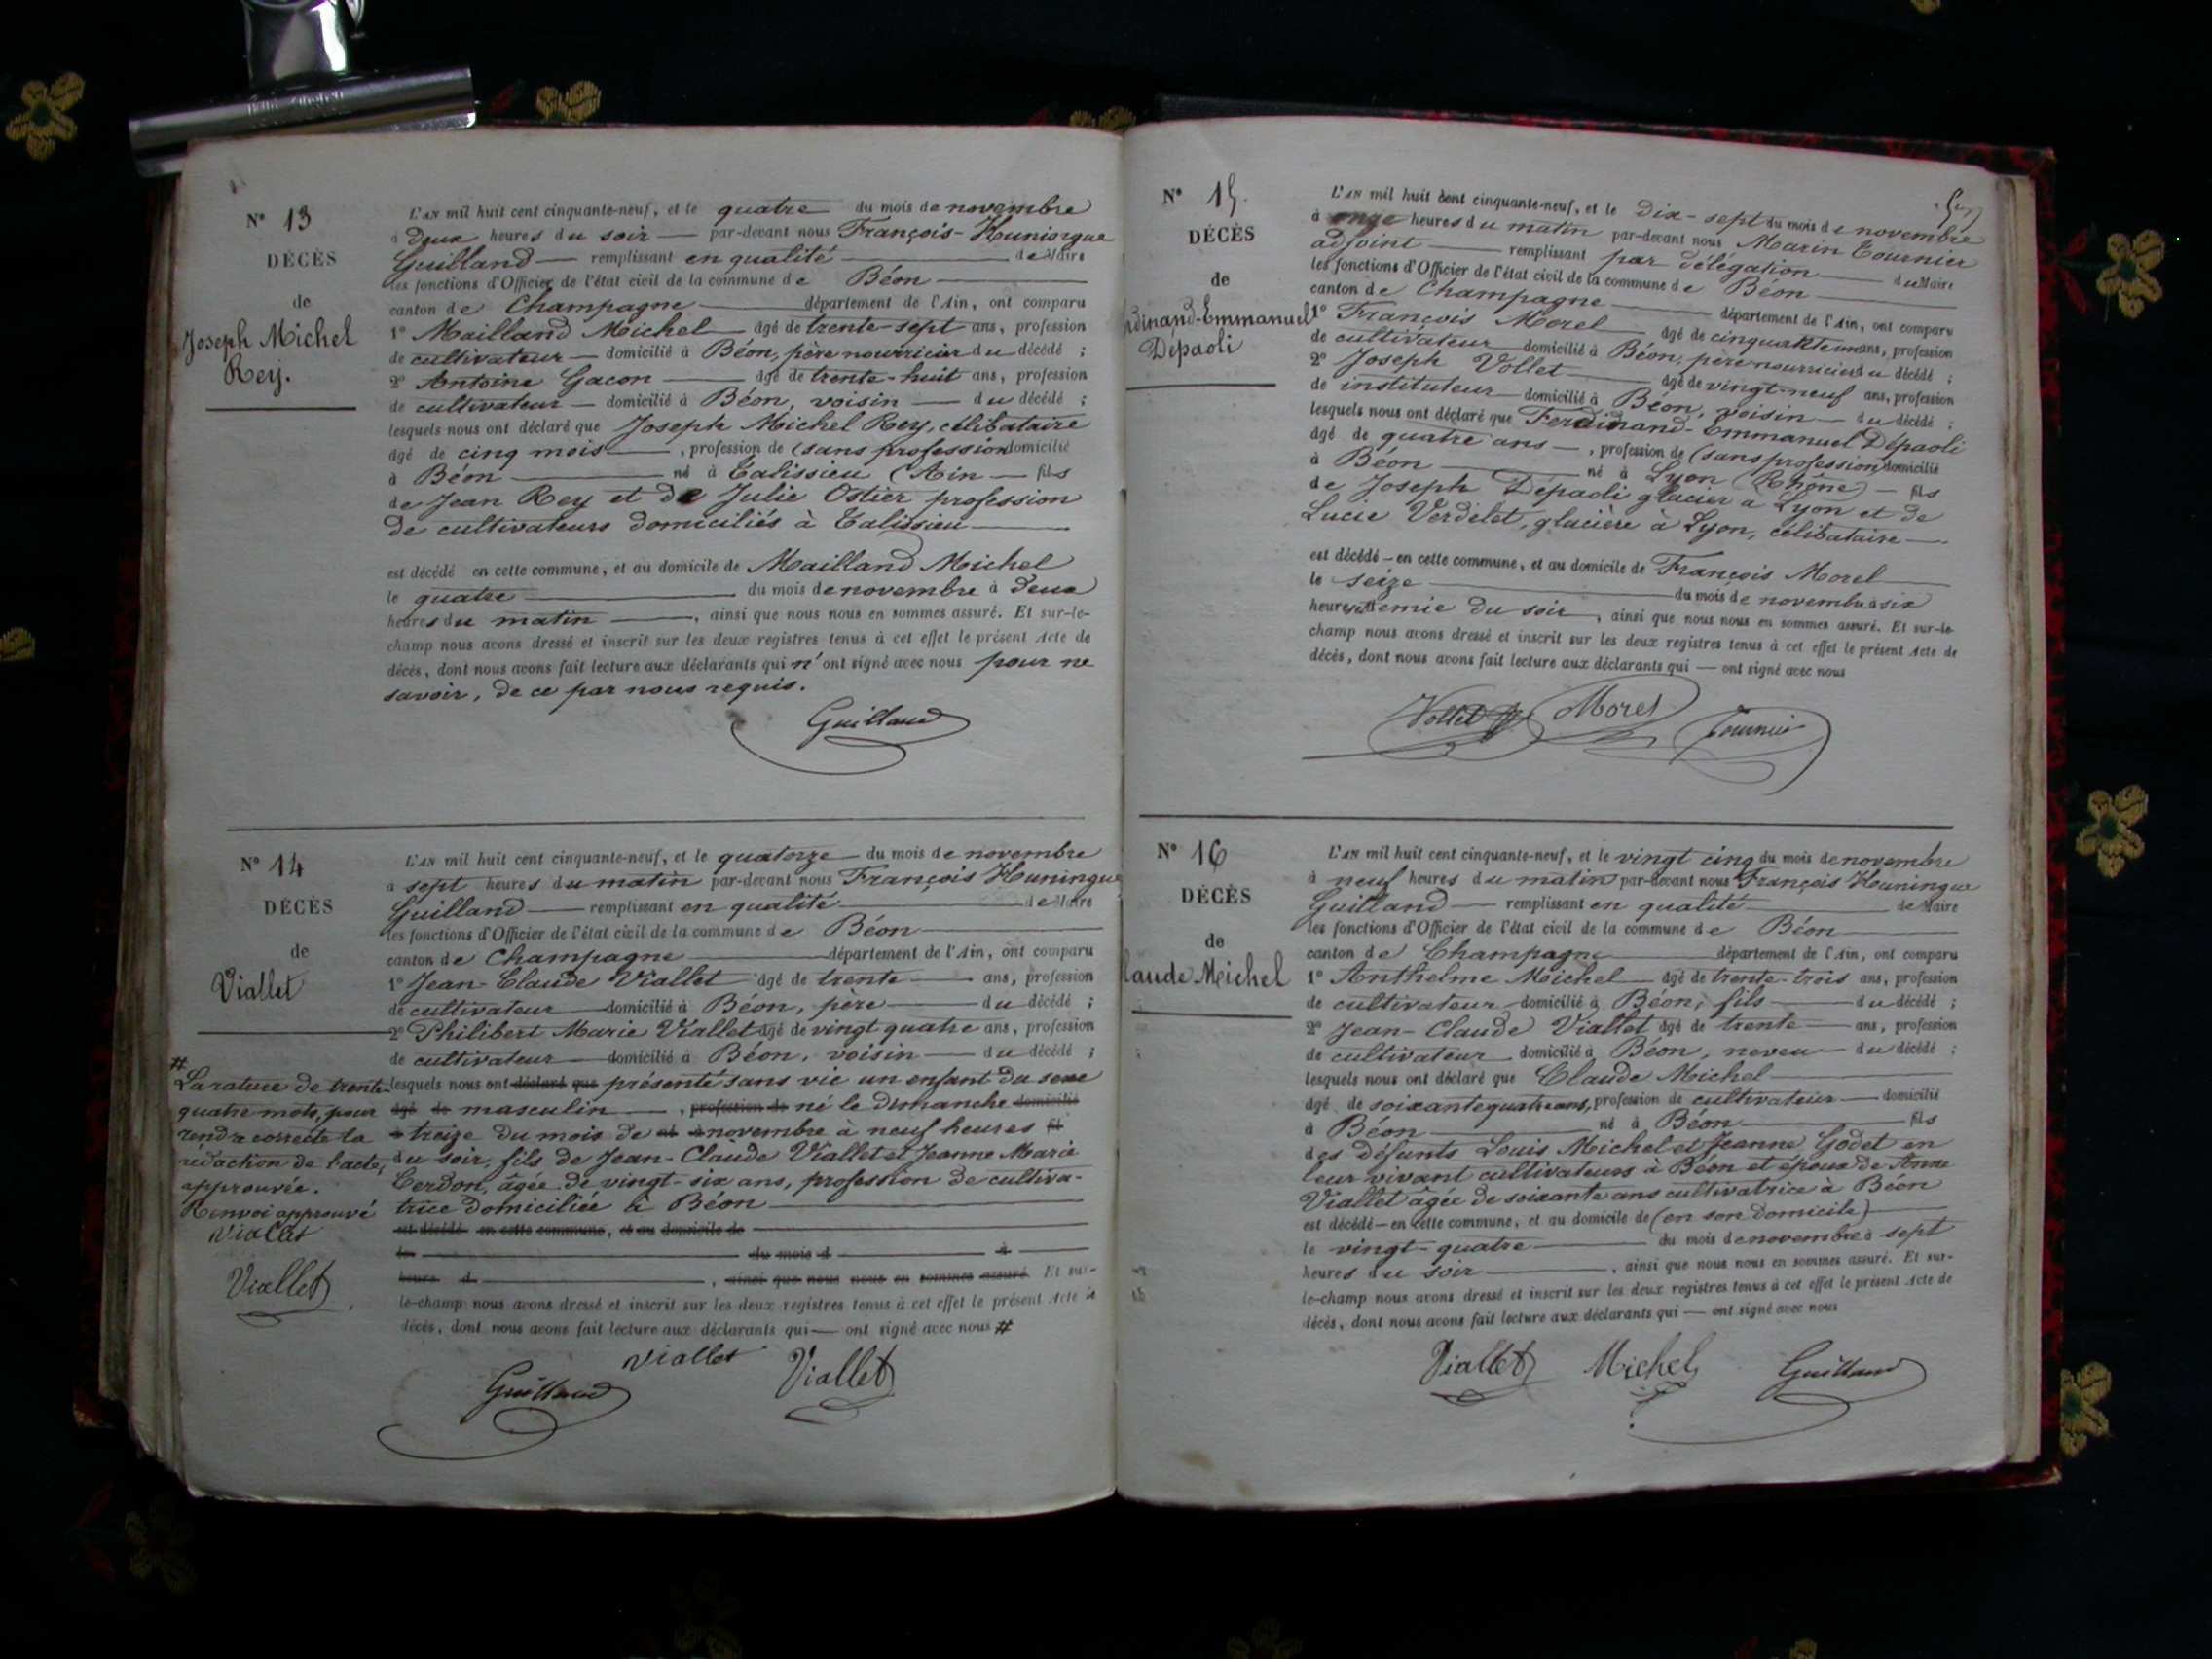 N° 13
DÉCÈS
de
Joseph Michel
Rey.
L'AN mil huit cent cinquante-neuf, et le quatre du mois de novembre
à deux heures du soir par-devant nous François-Huningue
Guilland remplissant en qualité de Maire
les fonctions d'Officier de l'état civil de la commune de Béon
canton de Champagne département de l'Ain, ont comparu
1° Mailland Michel âgé de trente-sept ans, profession
de cultivateur domicilié à Béon, père nourricier du décédé ;
2° Antoine Gacon âgé de trente-huit ans, profession
de cultivateur domicilié à Béon, voisin du décédé ;
lesquels nous ont déclaré que Joseph Michel Rey, célibataire
âgé de cinq mois, profession de (sans profession domicilié
à Béon né à Talissieu (Ain fils
de Jean Rey et de Julie Ostier profession
de cultivateurs domiciliés à Talissieu
est décédé en cette commune, et au domicile de Mailland Michel
le quatre du mois de novembre à deux
heures du matin, ainsi que nous nous en sommes assuré. Et sur-le-
champ nous avons dressé et inscrit sur les deux registres tenus à cet effet le présent Acte de
décès, dont nous avons fait lecture aux déclarants qui n'ont signé avec nous pour ne
savoir, de ce par nous requis.
Guilland
N° 14
DÉCÈS
de
Viallet
L'AN mil huit cent cinquante-neuf, et le quatorze du mois de novembre
à sept heures du matin par-devant nous François Huningue
Guilland remplissant en qualité de Maire
les fonctions d'Officier de l'état civil de la commune de Béon
canton de Champagne département de l'Ain, ont comparu
1° Jean-Claude Viallet âgé de trente ans, profession
de cultivateur domicilié à Béon, père du décédé ;
2° Philibert Marie Viallet âgé de vingt quatre ans, profession
de cultivateur domicilié à Béon, voisin du décédé ;
lesquels nous ont déclaré que présenté sans vie un enfant du sexe
âgé de masculin, profession de né le dimanche domicilié
à treize du mois de né à novembre à neuf heures fil
du soir, fils de Jean-Claude Viallet et Jeanne Marie
Cerdon, âgée de vingt-six ans, profession de cultiva-
trice domiciliée à Béon
est décédé en cette commune, et au domicile de
le du mois d à
heure d, ainsi que nous nous en sommes assuré. Et sur-
le-champ nous avons dressé et inscrit sur les deux registres tenus à cet effet le présent Acte de
décès, dont nous avons fait lecture aux déclarants qui ont signé avec nous #
#
La rature de trente-
quatre mots, pour
rendre correcte la
rédaction de l'acte,
approuvée.
Renvoi approuvé
Viallet
Viallet
Guilland Viallet Viallet
N° 15.
DÉCÈS
de
rdinand-Emmanuel
Dépaoli
L'AN mil huit cent cinquante-neuf, et le Dix-sept du mois de novembre
à onze heures du matin par-devant nous Marin Tournier
adjoint remplissant par délégation du Maire
les fonctions d'Officier de l'état civil de la commune de Béon
canton de Champagne département de l'Ain, ont comparu
1° François Morel âgé de cinquante un ans, profession
de cultivateur domicilié à Béon, père nourricier du décédé ;
2° Joseph Vollet âgé de vingt-neuf ans, profession
de instituteur domicilié à Béon, voisin du décédé ;
lesquels nous ont déclaré que Ferdinand-Emmanuel Dépaoli
âgé de quatre ans, profession de (sans profession domicilié
à Béon né à Lyon (Rhône) fils
de Joseph Dépaoli glacier à Lyon et de
Lucie Verdelet, glacière à Lyon, célibataire
est décédé en cette commune, et au domicile de François Morel
le seize du mois de novembre à six
heures et demie du soir, ainsi que nous nous en sommes assuré. Et sur-le-
champ nous avons dressé et inscrit sur les deux registres tenus à cet effet le présent Acte de
décès, dont nous avons fait lecture aux déclarants qui ont signé avec nous
Vollet Morel Tournier
N° 16
DÉCÈS
de
laude Michel
L'AN mil huit cent cinquante-neuf, et le vingt cinq du mois de novembre
à neuf heures du matin par-devant nous François Huningue
Guilland remplissant en qualité de Maire
les fonctions d'Officier de l'état civil de la commune de Béon
canton de Champagne département de l'Ain, ont comparu
1° Anthelme Michel âgé de trente-trois ans, profession
de cultivateur domicilié à Béon, fils du décédé ;
2° Jean-Claude Viallet âgé de trente ans, profession
de cultivateur domicilié à Béon, neveu du décédé ;
lesquels nous ont déclaré que Claude Michel
âgé de soixante quatre ans, profession de cultivateur domicilié
à Béon né à Béon fils
des défunts Louis Michel et Jeanne Godet en
leur vivant cultivateurs à Béon et époux de Anne
Viallet âgée de soixante ans cultivatrice à Béon
est décédé en cette commune, et au domicile de (en son domicile)
le vingt-quatre du mois de novembre à sept
heures du soir, ainsi que nous nous en sommes assuré. Et sur-
le-champ nous avons dressé et inscrit sur les deux registres tenus à cet effet le présent Acte de
décès, dont nous avons fait lecture aux déclarants qui ont signé avec nous
Viallet Michel Guilland